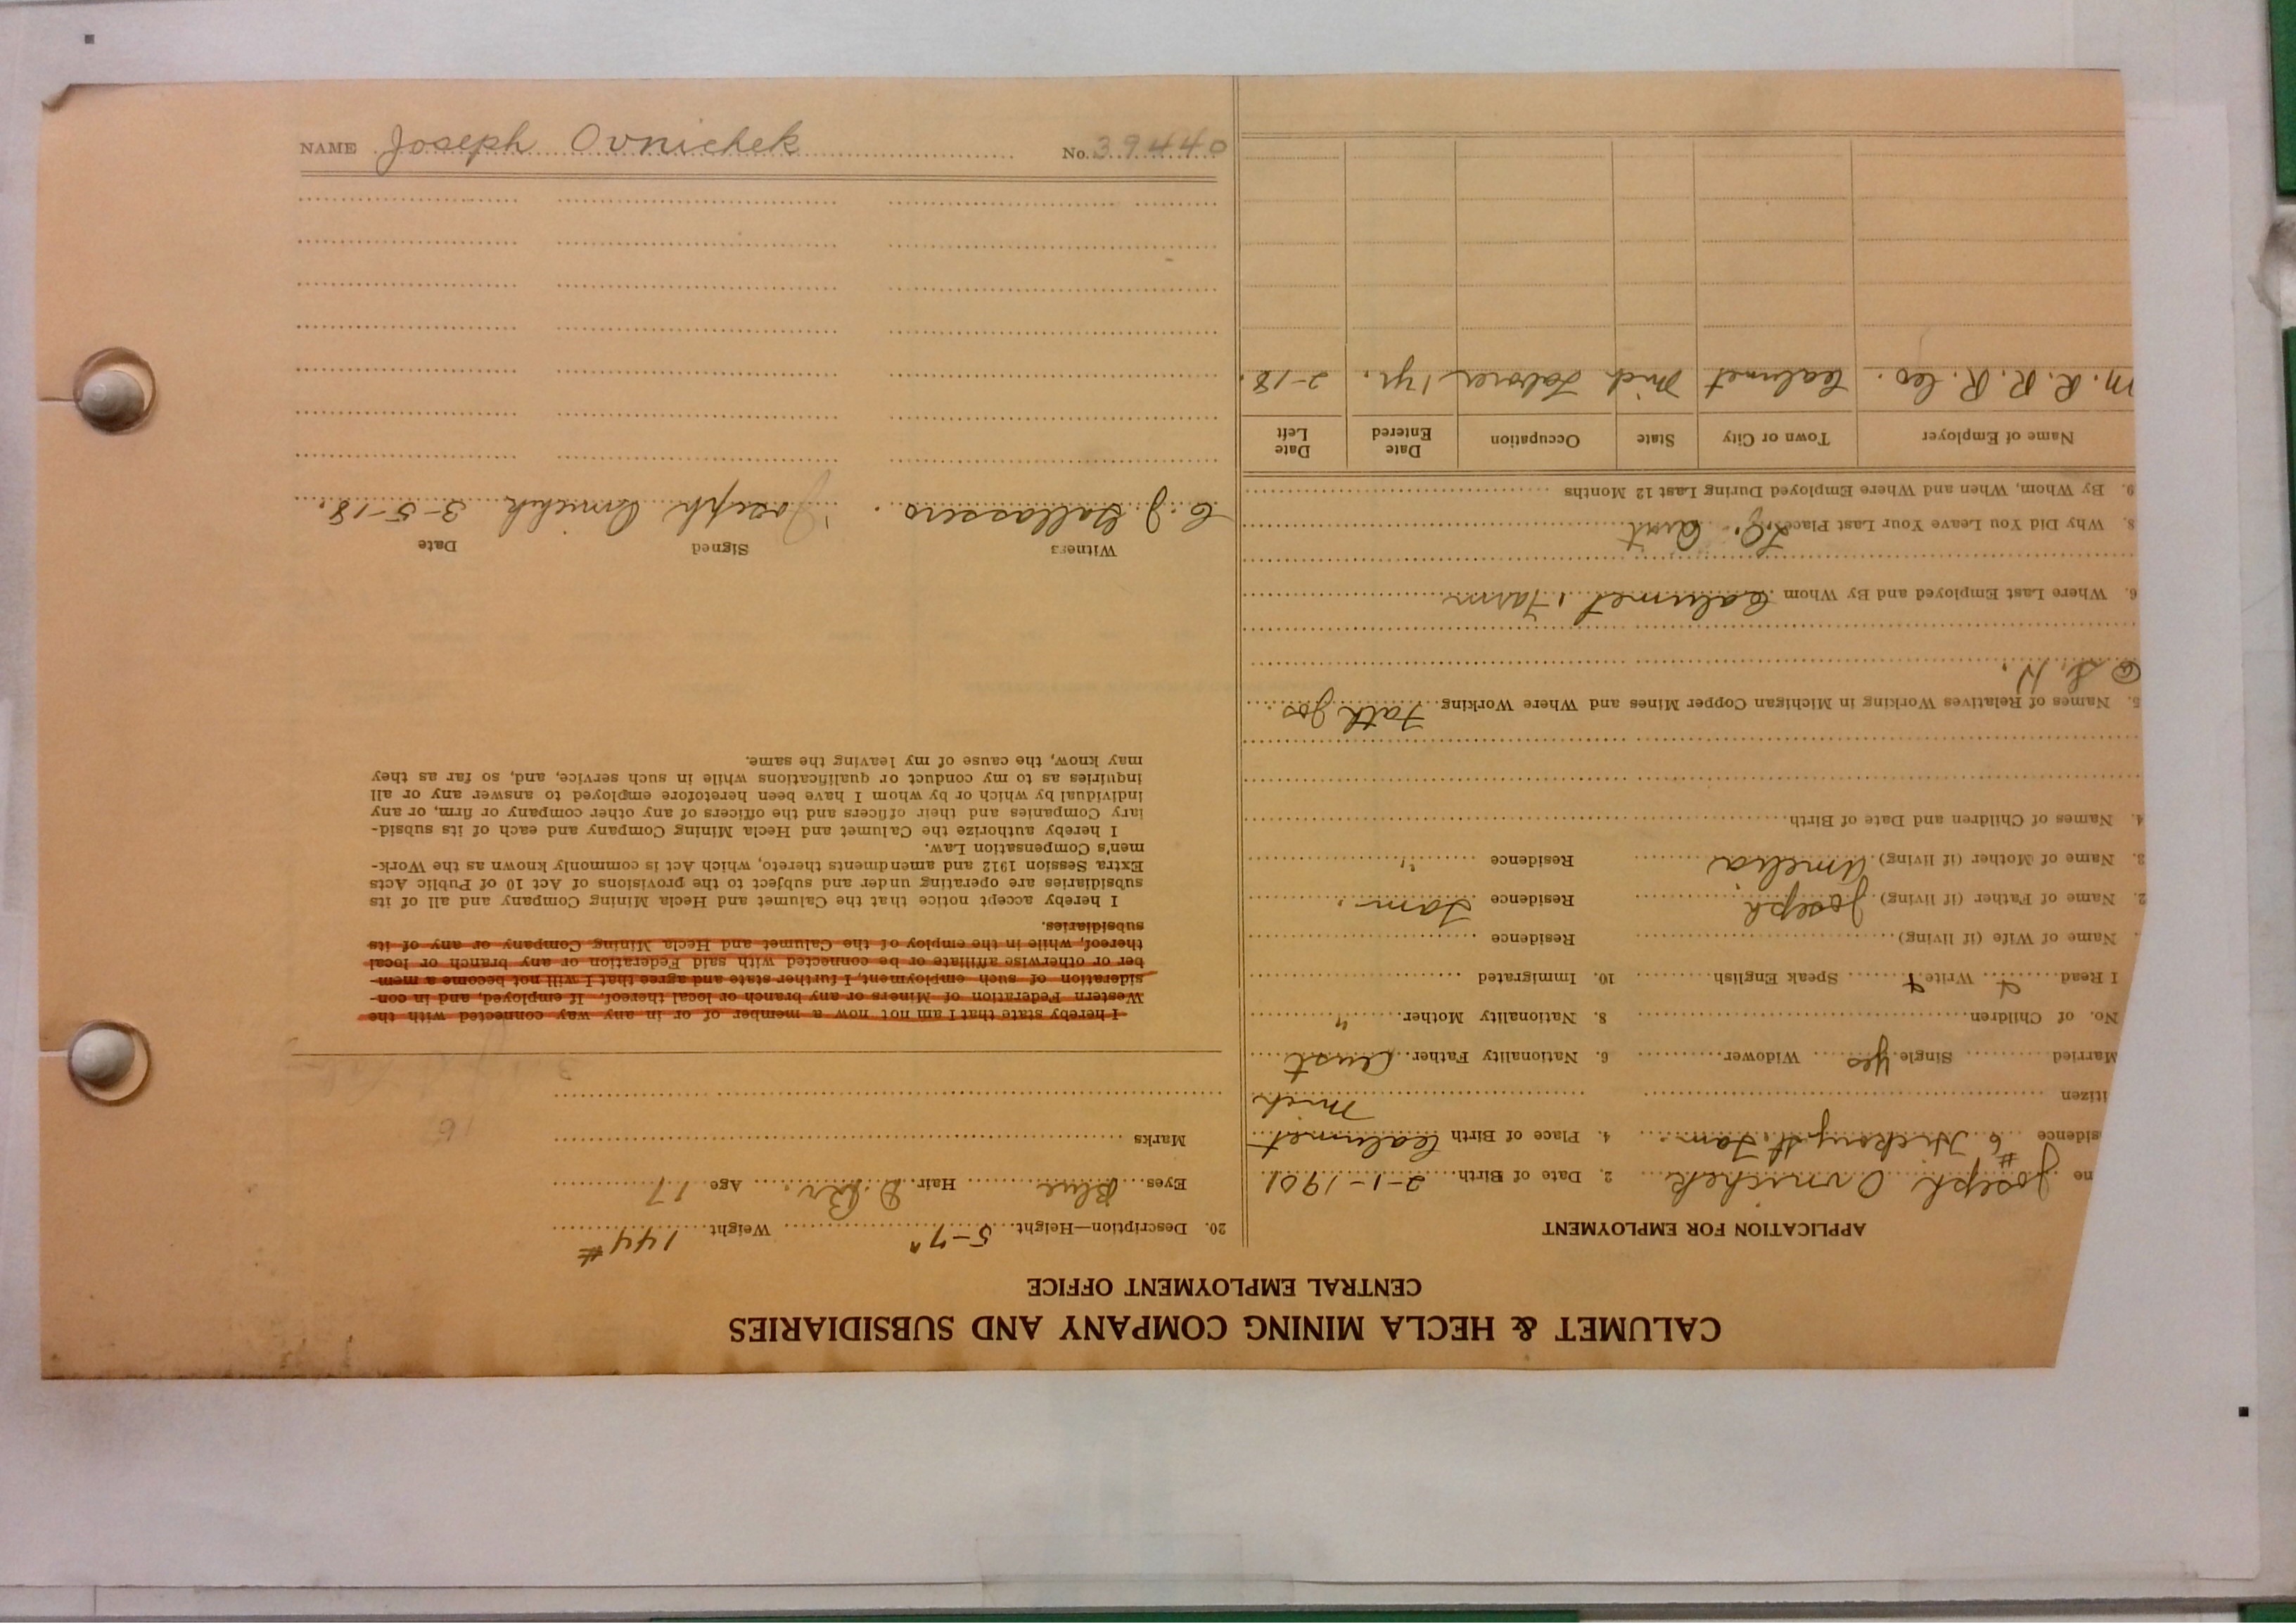 NAME Joseph Ovnichek No. 39440
CALUMET & HECLA MINING COMPANY AND SUBSIDIARIES
CENTRAL EMPLOYMENT OFFICE
APPLICATION FOR EMPLOYMENT
ne Joseph Ovnichek 2. Date of Birth 2-1-1901
sidence #6 Hickory St. Fam. 4. Place of Birth Calumet
itizen Mich
Married Single yes Widower 6. Nationality Father Aust
No. of Children 8. Nationality Mother "
I Read Write Speak English 10. Immigrated
Name of Wife (if living) Residence
2. Name of Father (if living) Joseph Residence Fam.
3. Name of Mother (if living) Amelia Residence "
4. Names of Children and Date of Birth
5. Names of Relatives Working in Michigan Copper Mines and Where Working Fath Jos.
6. Where Last Employed and By Whom Calumet, Farm
8. Why Did You Leave Your Last Place
9. By Whom, When and Where Employed During Last 12 Months
Name of Employer Town or City State Occupation Date Entered Date Left
M. R. R. R. Co. Calumet Mich Laborer 1 yr. 2-18.
20. Description—Height 5-7" Weight 144#
Eyes Blue Hair D. Br. Age 17
Marks
16
I hereby state that I am not now a member of or in any way connected with the
Western Federation of Miners or any branch or local thereof. If employed, and in con-
sideration of such employment, I further state and agree that I will not become a mem-
ber or otherwise affiliate or be connected with said Federation or any branch or local
thereof, while in the employ of the Calumet and Hecla Mining Company or any of its
subsidiaries.
I hereby accept notice that the Calumet and Hecla Mining Company and all of its
subsidiaries are operating under and subject to the provisions of Act 10 of Public Acts
Extra Session 1912 and amendments thereto, which Act is commonly known as the Work-
men's Compensation Law.
I hereby authorize the Calumet and Hecla Mining Company and each of its subsid-
iary Companies and their officers and the officers of any other company or firm, or any
individual by which or by whom I have been heretofore employed to answer any or all
inquiries as to my conduct or qualifications while in such service, and, so far as they
may know, the cause of my leaving the same.
Witness Signed Date
C. J. Gallassero. Joseph Ovnichek 3-5-18.